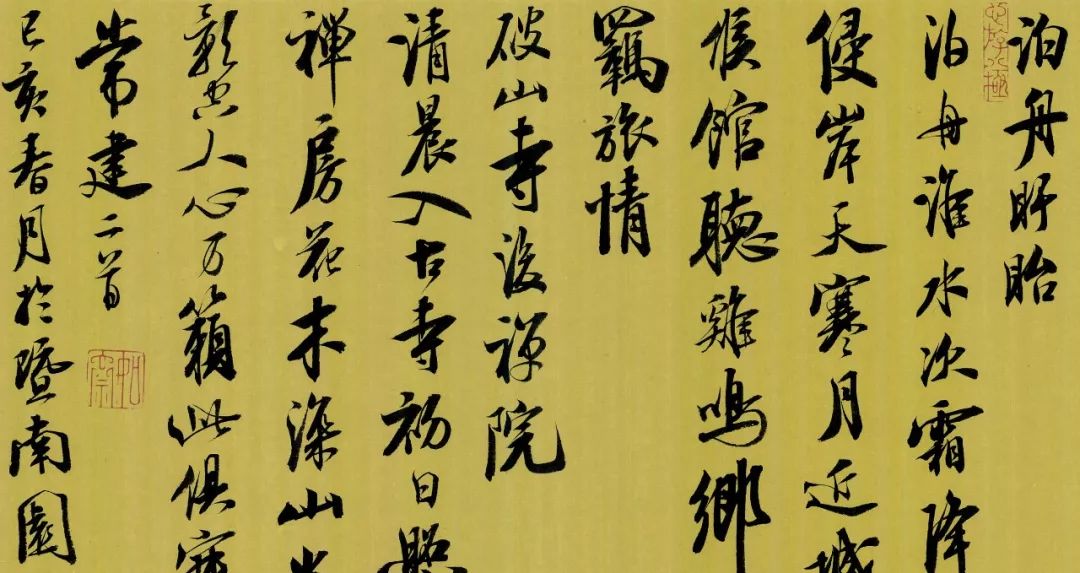 泊舟盱眙
泊舟淮水次霜降
侵岸天寒月近城
候館聽雞鳴鄉
羈旅情
破山寺後禅院
清晨入古寺初日照
禅房花木深山光
影空人心万籟此俱寂
常建二首
己亥春月於暨南園